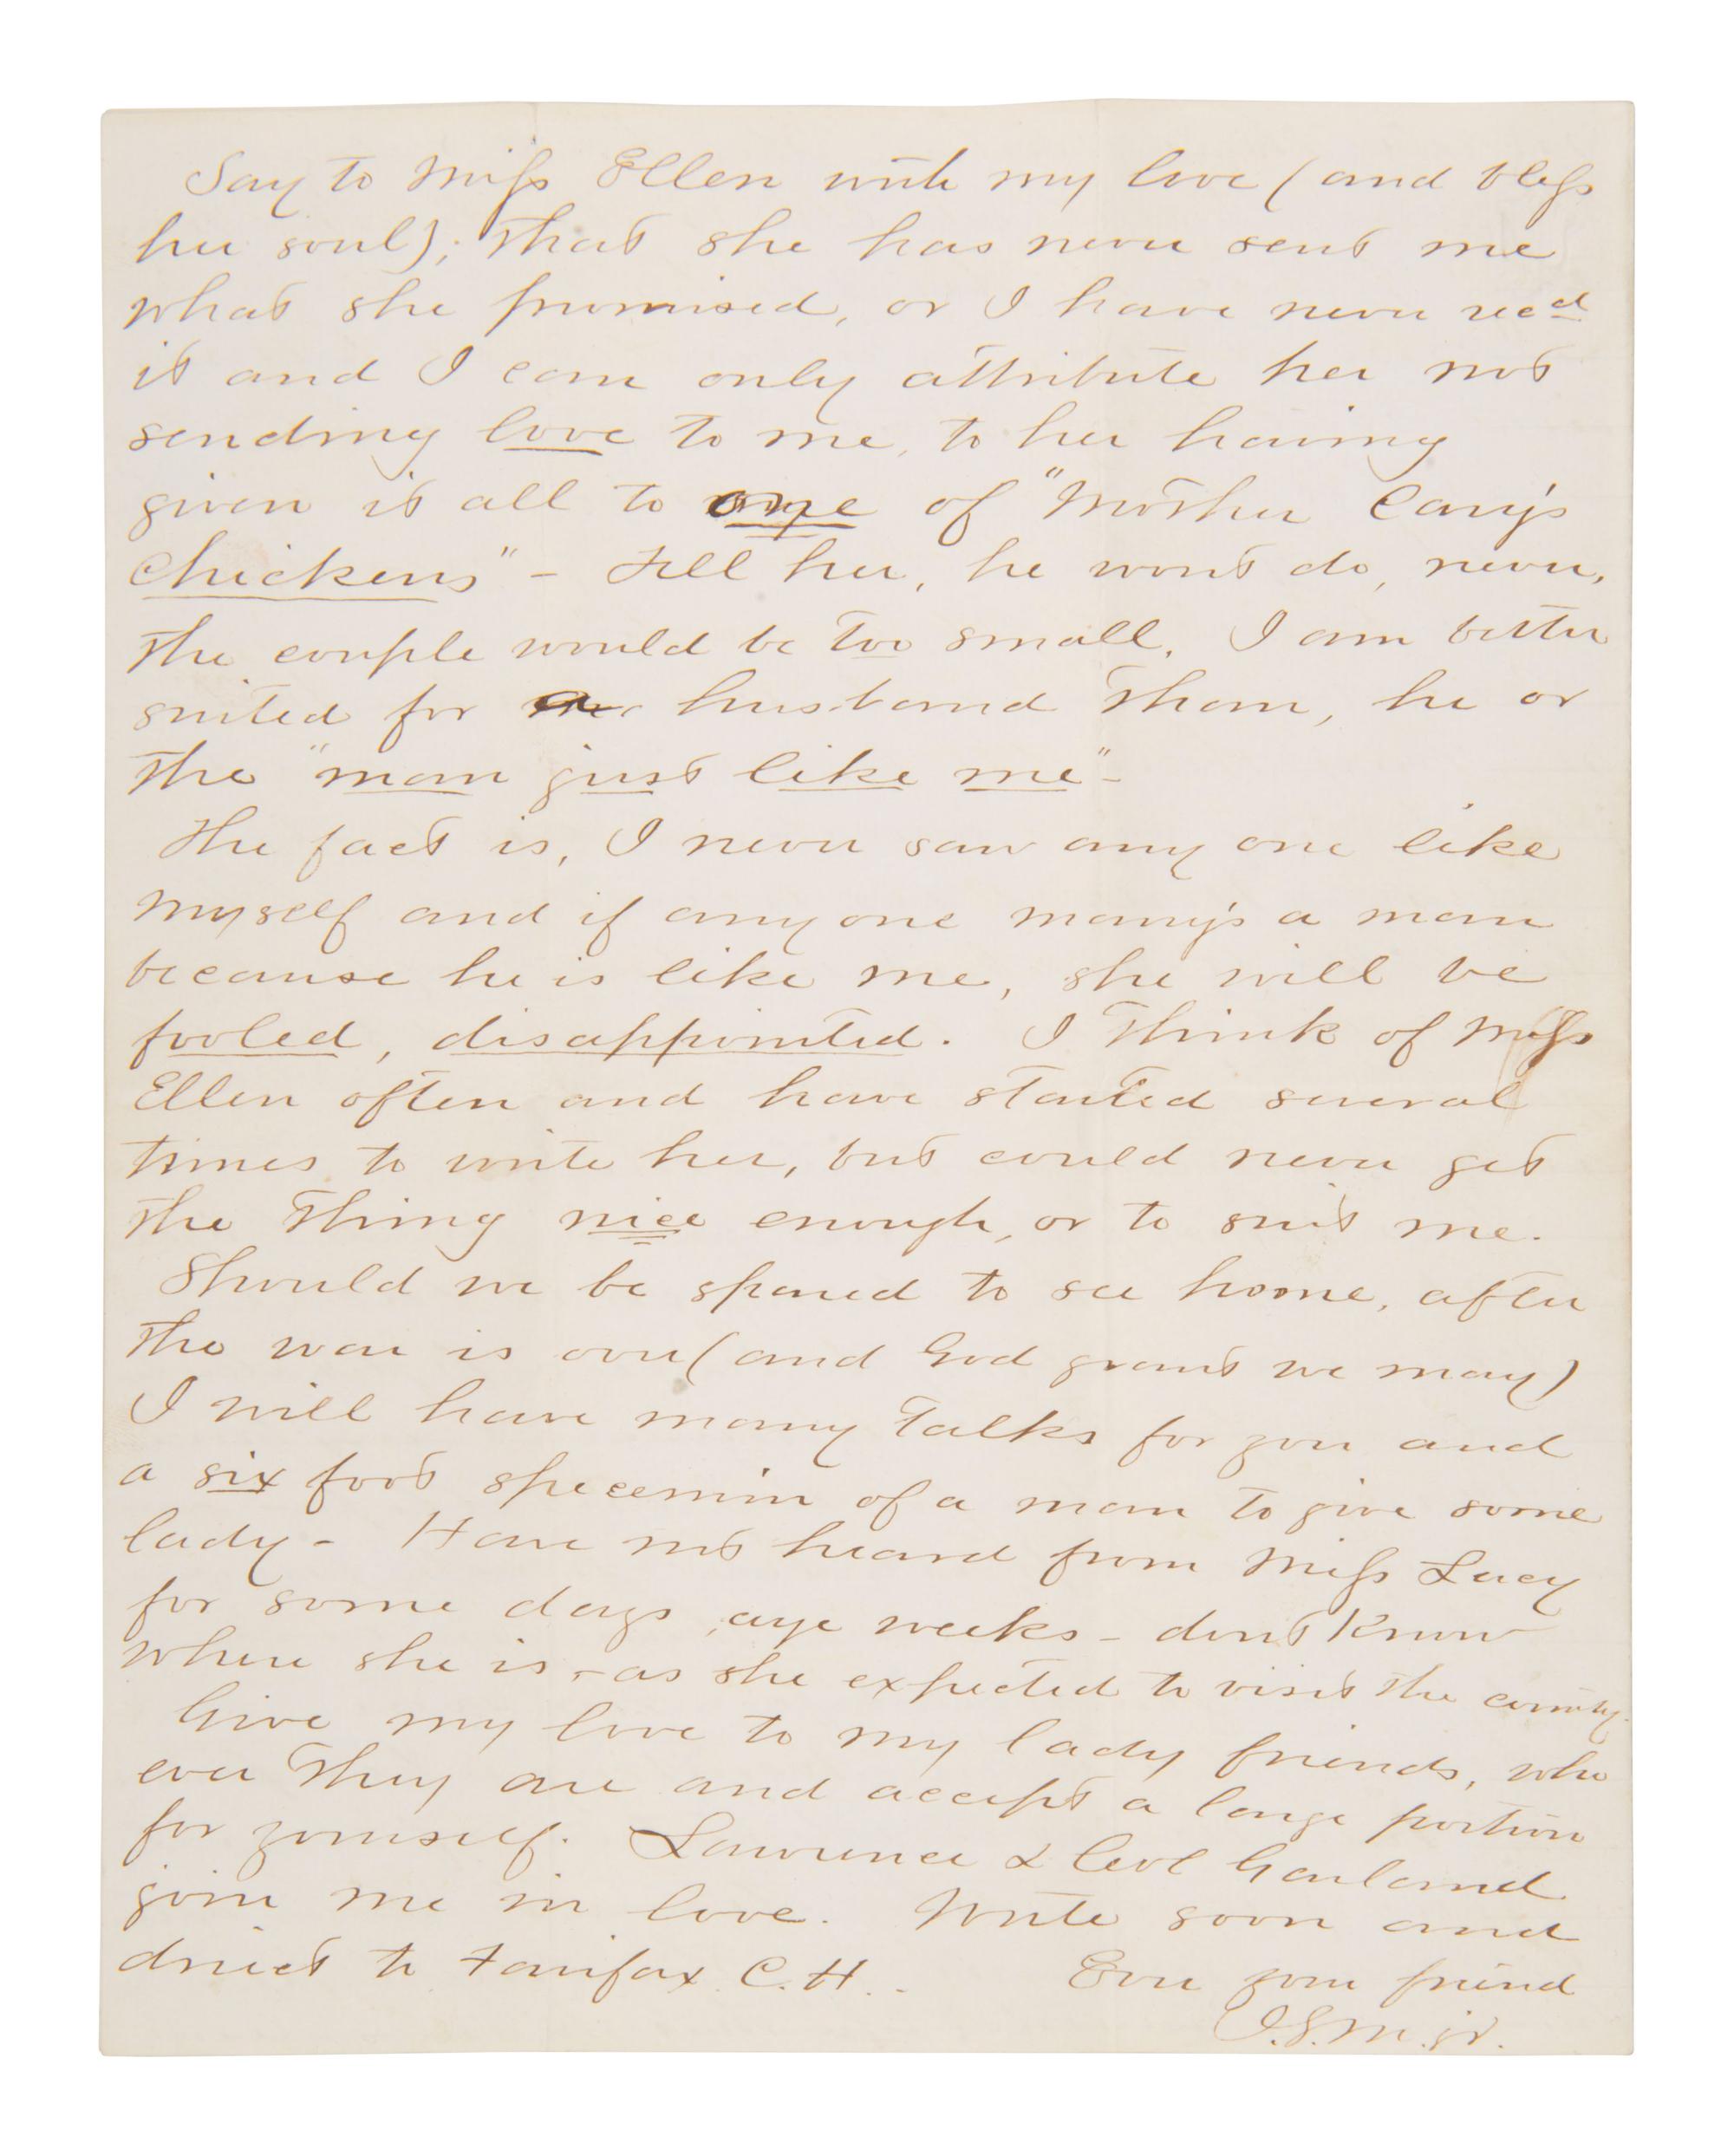 Say to Miss Ellen with my love (and bless
her soul); that she has never sent me
what she promised, or I have never recd
it and I can only attribute her not
sending love to me, to her having
given it all to one of "Mother Cary's
Chickens" - Tell her, he wont do, never,
the couple would be too small. I am better
suited for a husband than, he or
the "man just like me" -
The fact is, I never saw any one like
myself and if any one marry's a man
because he is like me, she will be
fooled, disappointed. I think of Miss
Ellen often and have started several
times to write her, but could never get
the thing nice enough, or to suit me.
Should we be spared to see home, after
the war is over (and God grant we may)
I will have many talks for you and
a six foot specemin of a man to give some
lady - Have not heard from Miss Lucy
for some days, aye weeks - dont know
where she is, - as she expected to visit the county.
Give my love to my lady friends, who
ever they are and accept a large portion
for yourself. Lawrence & Col Garland
join me in love. Write soon and
direct to Fairfax C.H. . Ever your friend
J.S.M. jr.